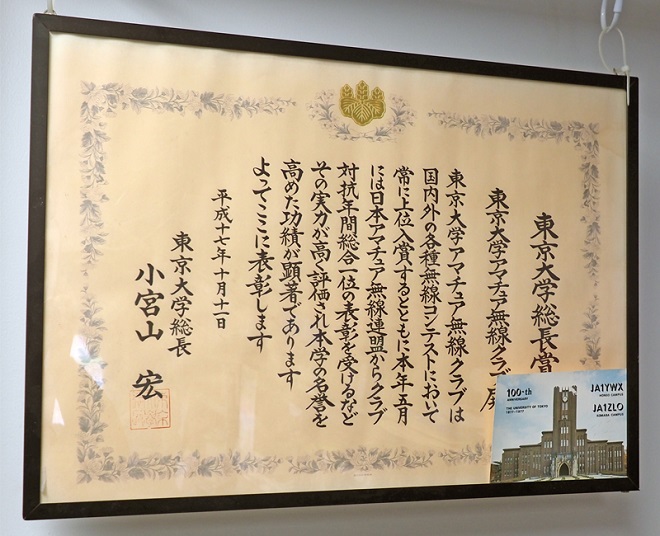 東京大学総長賞
東京大学アマチュア無線クラブ殿
東京大学アマチュア無線クラブは
国内外の各種無線コンテストにおいて
常に上位入賞するとともに本年五月
には日本アマチュア無線連盟からクラブ
対抗年間総合一位の表彰を受けるなど
その実力が高く評価され本学の名誉を
高めた功績が顕著であります
よってここに表彰します
平成十七年十月十一日
東京大学総長
小宮山 宏
100-th
ANNIVERSARY
THE UNIVERSITY OF TOKYO
1877-1977
JA1YWX
HONGO CAMPUS
JA1ZLO
KOMABA CAMPUS